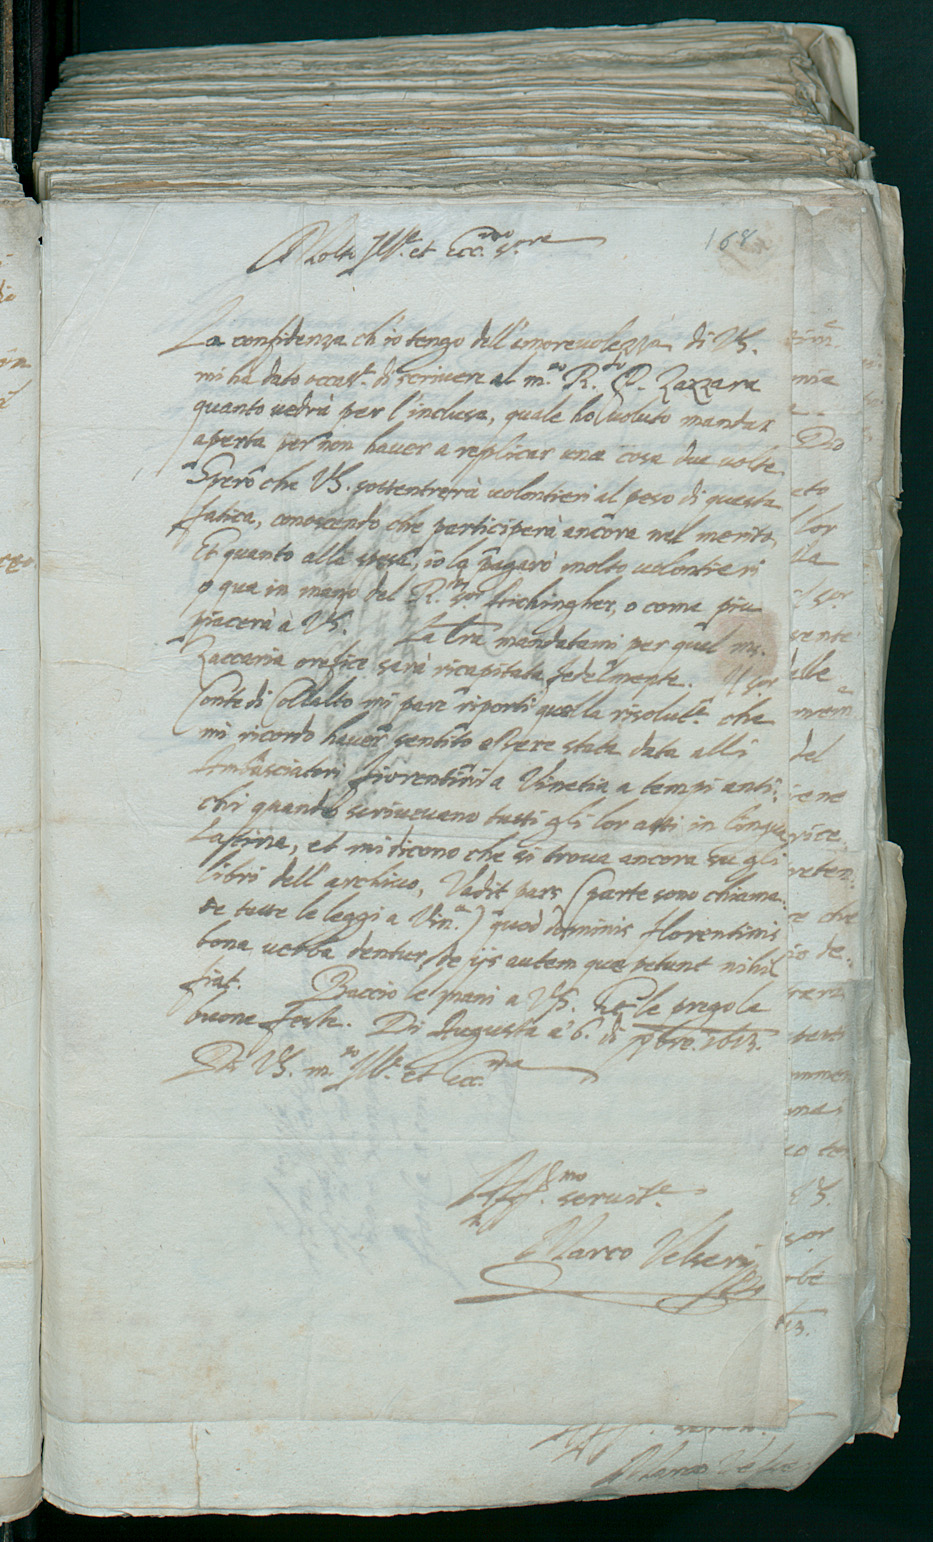 168
Molto Ill.re et Ecc.mo s.ore
La confidenza ch'io tengo dell'amorevolezza di VS.
mi ha dato occas.e di scrivere al m.to R.do P. Zazzara
quanto vedrà per l'inclusa, quale ho voluto mandar
aperta per non haver a replicar una cosa due volte.
Sperò che VS. sottentrerà volontieri al peso di questa
fatica, conoscendo che participerà ancora nel merito,
Et quanto alla spesa, io la pagarò molto volontieri
o qua in mano del R.mo sor. , o come piu
piacerà à VS. La lra mandatami per quel ms.
Zaccaria orefice sarà ricapitata fedelmente. Il sor.
Conte di Collalto mi pare riporti quella risolut.e che
mi ricordo haver sentito essere stata data alli
Ambasciatori fiorentini a Vinetia a tempi anti
chi quando scrivevano tutti gli lor atti in lingua
Lattina, et mi dicono che si trova ancora su gli
libri dell'archivo, Vadit pars (parte sono chiama
te tutte le leggi a Vin.a) quod dominis florentinis
bona verba dentur, de ijs autem quæ petunt nihil
fiat. Baccio le mani a VS. et le prego le
buone feste. Di Augusta a 6. di Xbre. 1613.
Di VS. m.to Ill.re et Ecc.ma
Aff.mo servit.e
Marco Velseri